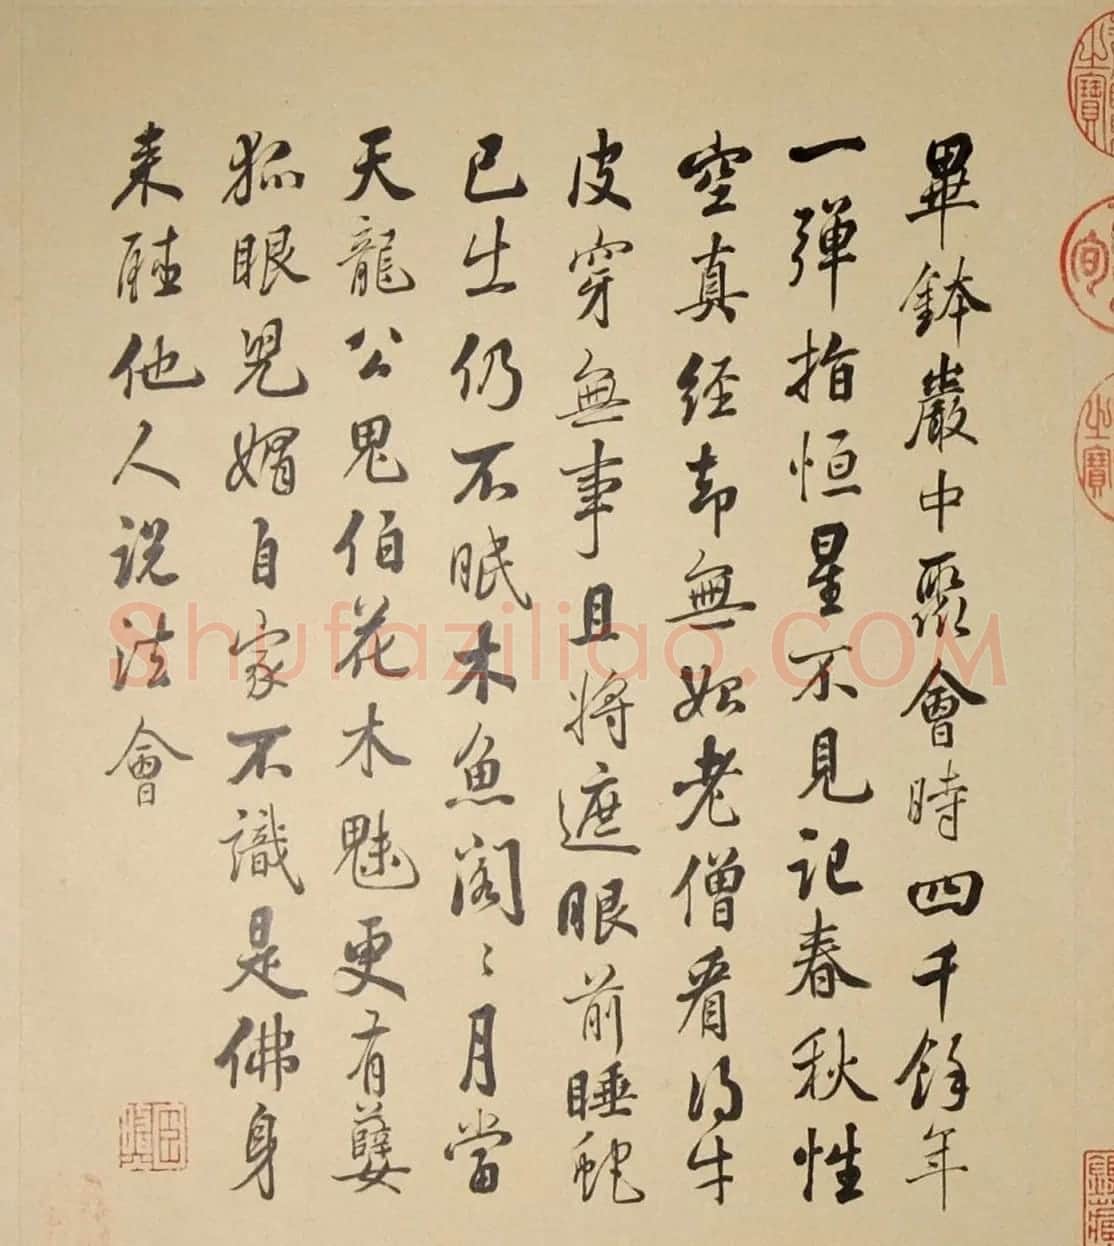 畢鉢巖中聚會時四千餘年
一彈指恒星不見記春秋性
空真経却無如老僧看得牛
皮穿無事且将遮眼前睡魔
已生仍不眠木魚閣〻月當
天龍公鬼伯花木魅更有孽
狐眼児媚自家不識是佛身
来聴他人説法會
之寶
之寶
Shufaziliao.COM